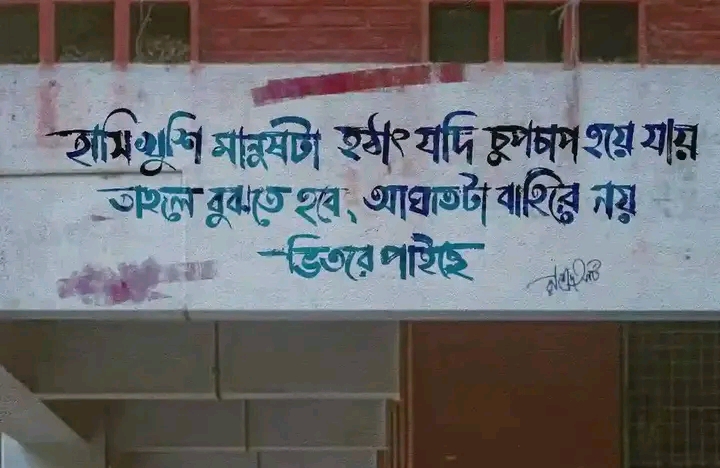 হাসি খুশি মানুষটা হঠাৎ যদি চুপচাপ হয়ে যায়
তাহলে বুঝতে হবে, আঘাতটা বাহিরে নয়
ভিতরে পাইছে